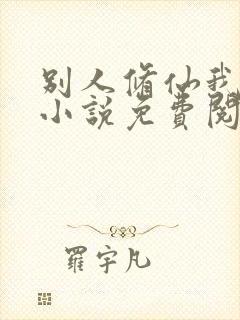 别人脩仙我
小說免費閱
羅宇凡